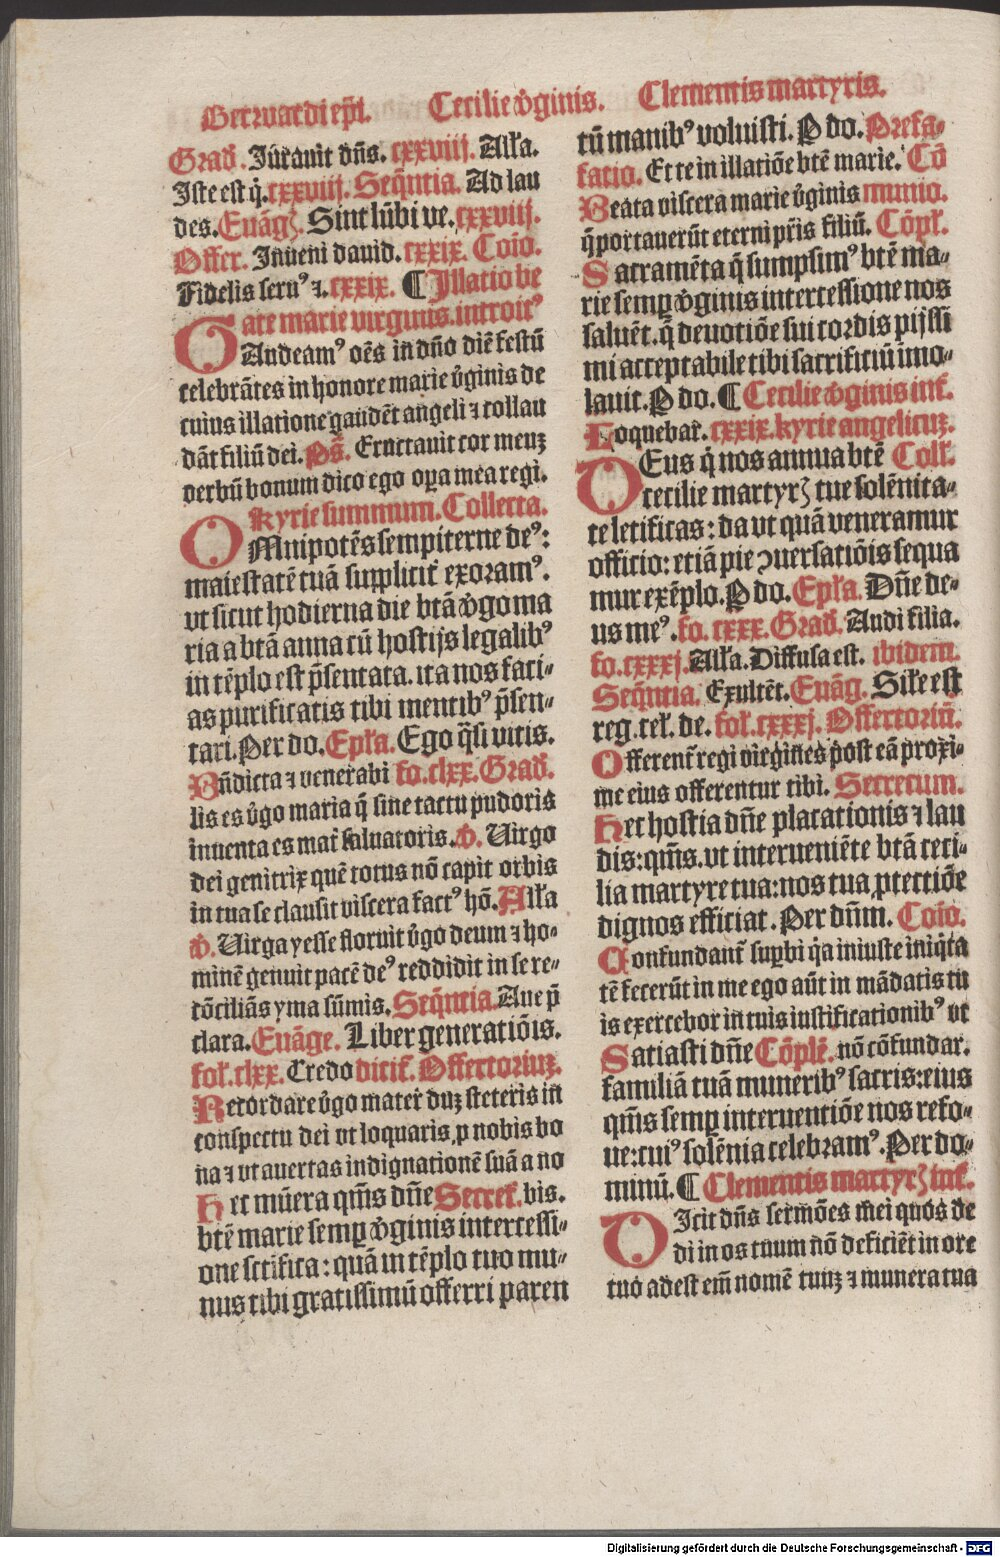 Berwardi ep̃i. Cecilie v̓ginis. Clementis martyris.
Grad̃. Jurauit dñs. cxxviij. Alla.
Iste est q̃. cxxviij. Seq̃ntia. Ad lau
des. Euãgꝫ. Sint lũbi ve. cxxviij.
Offer. Inueni dauid. cxxix. Coĩo.
Fidelis seru⁹ ⁊. cxxix. ¶ Illatio be
ate marie virginis. introit⁹
GAudeam⁹ oẽs in dño diẽ festũ
celebrãtes in honore marie v̓ginis de
cuius illatione gaudẽt angeli ⁊ collau
dãt filiũ dei. Ps̃. Eructauit cor meuꝫ
verbũ bonum dico ego oꝑa mea regi.
kyrie summum. Collecta.
OMnipotẽs sempiterne de⁹:
maiestatẽ tuã supplicit̃ exoram⁹.
vt sicut hodierna die btã v̓go ma
ria a btã anna cũ hostijs legalib⁹
in tẽplo est p̃sentata. ita nos faci⸗
as purificatis tibi mentib⁹ p̃sen⸗
tari. Per do. Ep̃la. Ego q̃si vitis.
Bñdicta ⁊ venerabi fo. clxx. Grad̃.
lis es v̓go maria q̃ sine tactu pudoris
inuenta es mat̃ saluatoris. v̓. Uirgo
dei genitrix quẽ totus nõ capit orbis
in tua se clausit viscera fact⁹ hõ. Alla
v̓. Uirga yesse floruit v̓go deum ⁊ ho⸗
minẽ genuit pacẽ de⁹ reddidit in se re⸗
cõciliãs yma sũmis. Seq̃ntia. Aue p̃
clara. Euãge. Liber generatiõis.
fol. clxx. Credo dicit̃. Offertoriuꝫ.
Recordare v̓go mater duꝫ steteris in
conspectu dei vt loquaris ꝓ nobis bo
na ⁊ vt auertas indignationẽ suã a no
Hec mũera qm̃s dñe Secret̃. bis.
btẽ marie semꝑ v̓ginis intercessi⸗
one sctifica: quã in tẽplo tuo mu⸗
nus tibi gratissimũ offerri paren
tũ manib⁹ voluisti. P do. Prefa⸗
fatio. Et te in illatiõe btẽ marie. Cõ
Beata viscera marie v̓ginis munio.
q̃ portauerũt eterni pr̃is filiũ. Cõpl.
Sacramẽta q̃ sumpsim⁹ btẽ ma⸗
rie semꝑ v̓ginis intercessione nos
saluẽt. q̃ deuotiõe sui cordis pijssi
mi acceptabile tibi sacrificiũ imo⸗
lauit. P do. ¶ Cecilie v̓ginis int̃.
Loquebar̃. cxxix. kyrie angelicuꝫ.
DEus q̃ nos annua btẽ Coll.
cecilie martyrꝫ tue solẽnita⸗
te letificas: da vt quã veneramur
officio: etiã pie ↄuersatiõis sequa
mur exẽplo. P do. Ep̃la. Dñe de⸗
us me⁹. fo. cxxx. Grad̃. Audi filia.
fo. cxxxj. Alla. Diffusa est. ibidem.
Seq̃ntia. Exultẽt. Euãg. Sile est
reg. cel. de. fol. cxxxj. Offertoriũ.
Offerent̃ regi virgines post eã proxi⸗
me eius offerentur tibi. Secretum.
Hec hostia dñe placationis ⁊ lau
dis: qm̃s. vt interueniẽte btã ceci⸗
lia martyre tua: nos tua ꝓtectiõe
dignos efficiat. Per dñm. Coĩo.
Confundant̃ supꝑbi q̃a iniuste iniq̃ta
tẽ fecerũt in me ego aũt in mãdatis tu
is exercebor in tuis iustificationib⁹ vt
Satiasti dñe Cõplẽ. nõ cõfundar.
familiã tuã munerib⁹ sacris: eius
qm̃s semꝑ interuentiõe nos refo⸗
ue: cui⁹ solẽnia celebram⁹. Per do⸗
minũ. ¶ Clementis martyrꝫ int̃.
DIcit dñs sermões mei quos de
di in os tuum nõ deficiẽt in ore
tuo adest em̃ nomẽ tuuꝫ ⁊ munera tua
Digitalisierung gefördert durch die Deutsche Forschungsgemeinschaft - DFG